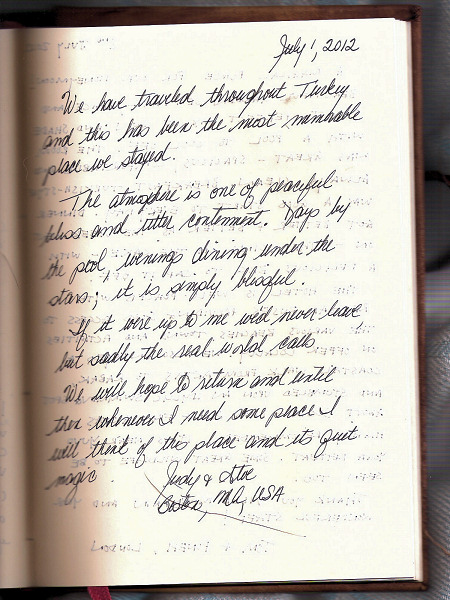 July 1, 2012
We have traveled throughout Turkey
and this has been the most memorable
place we stayed.
The atmosphere is one of peaceful
bliss and utter contenment. Days by
the pool, evenings dining under the
stars; it is simply blissful.
If it were up to me we'd never leave
but sadly the real world calls.
We will hope to return and until
then whenever I need some peace I
will think of this place and its quiet
magic.
Judy & Steve
Boston, MA, USA